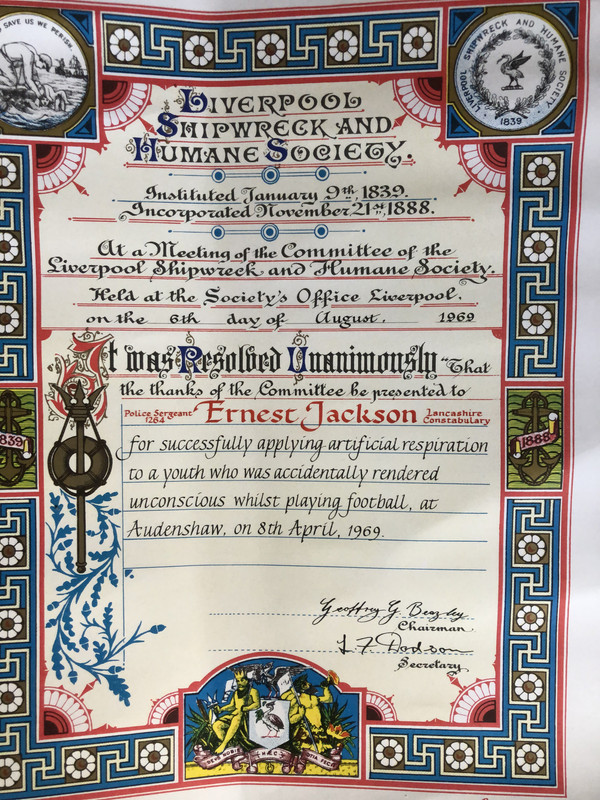 SAVE US WE PERISH
LIVERPOOL SHIPWRECK AND HUMANE SOCIETY
1839
Liverpool
Shipwreck and
Humane Society.
Instituted January 9th, 1839.
Incorporated November 21st, 1888.
At a Meeting of the Committee of the
Liverpool Shipwreck and Humane Society.
Held at the Society's Office Liverpool.
on the 6th day of August. 1969
It was Resolved Unanimously "That
the thanks of the Committee be presented to
Police Sergeant 1264 Ernest Jackson Lancashire Constabulary
for successfully applying artificial respiration
to a youth who was accidentally rendered
unconscious whilst playing football, at
Audenshaw, on 8th April, 1969.
839
1888
Geoffrey G. Beazley
Chairman
J. F. Dodson
Secretary
DEUS NOBIS HÆC OTIA FECIT